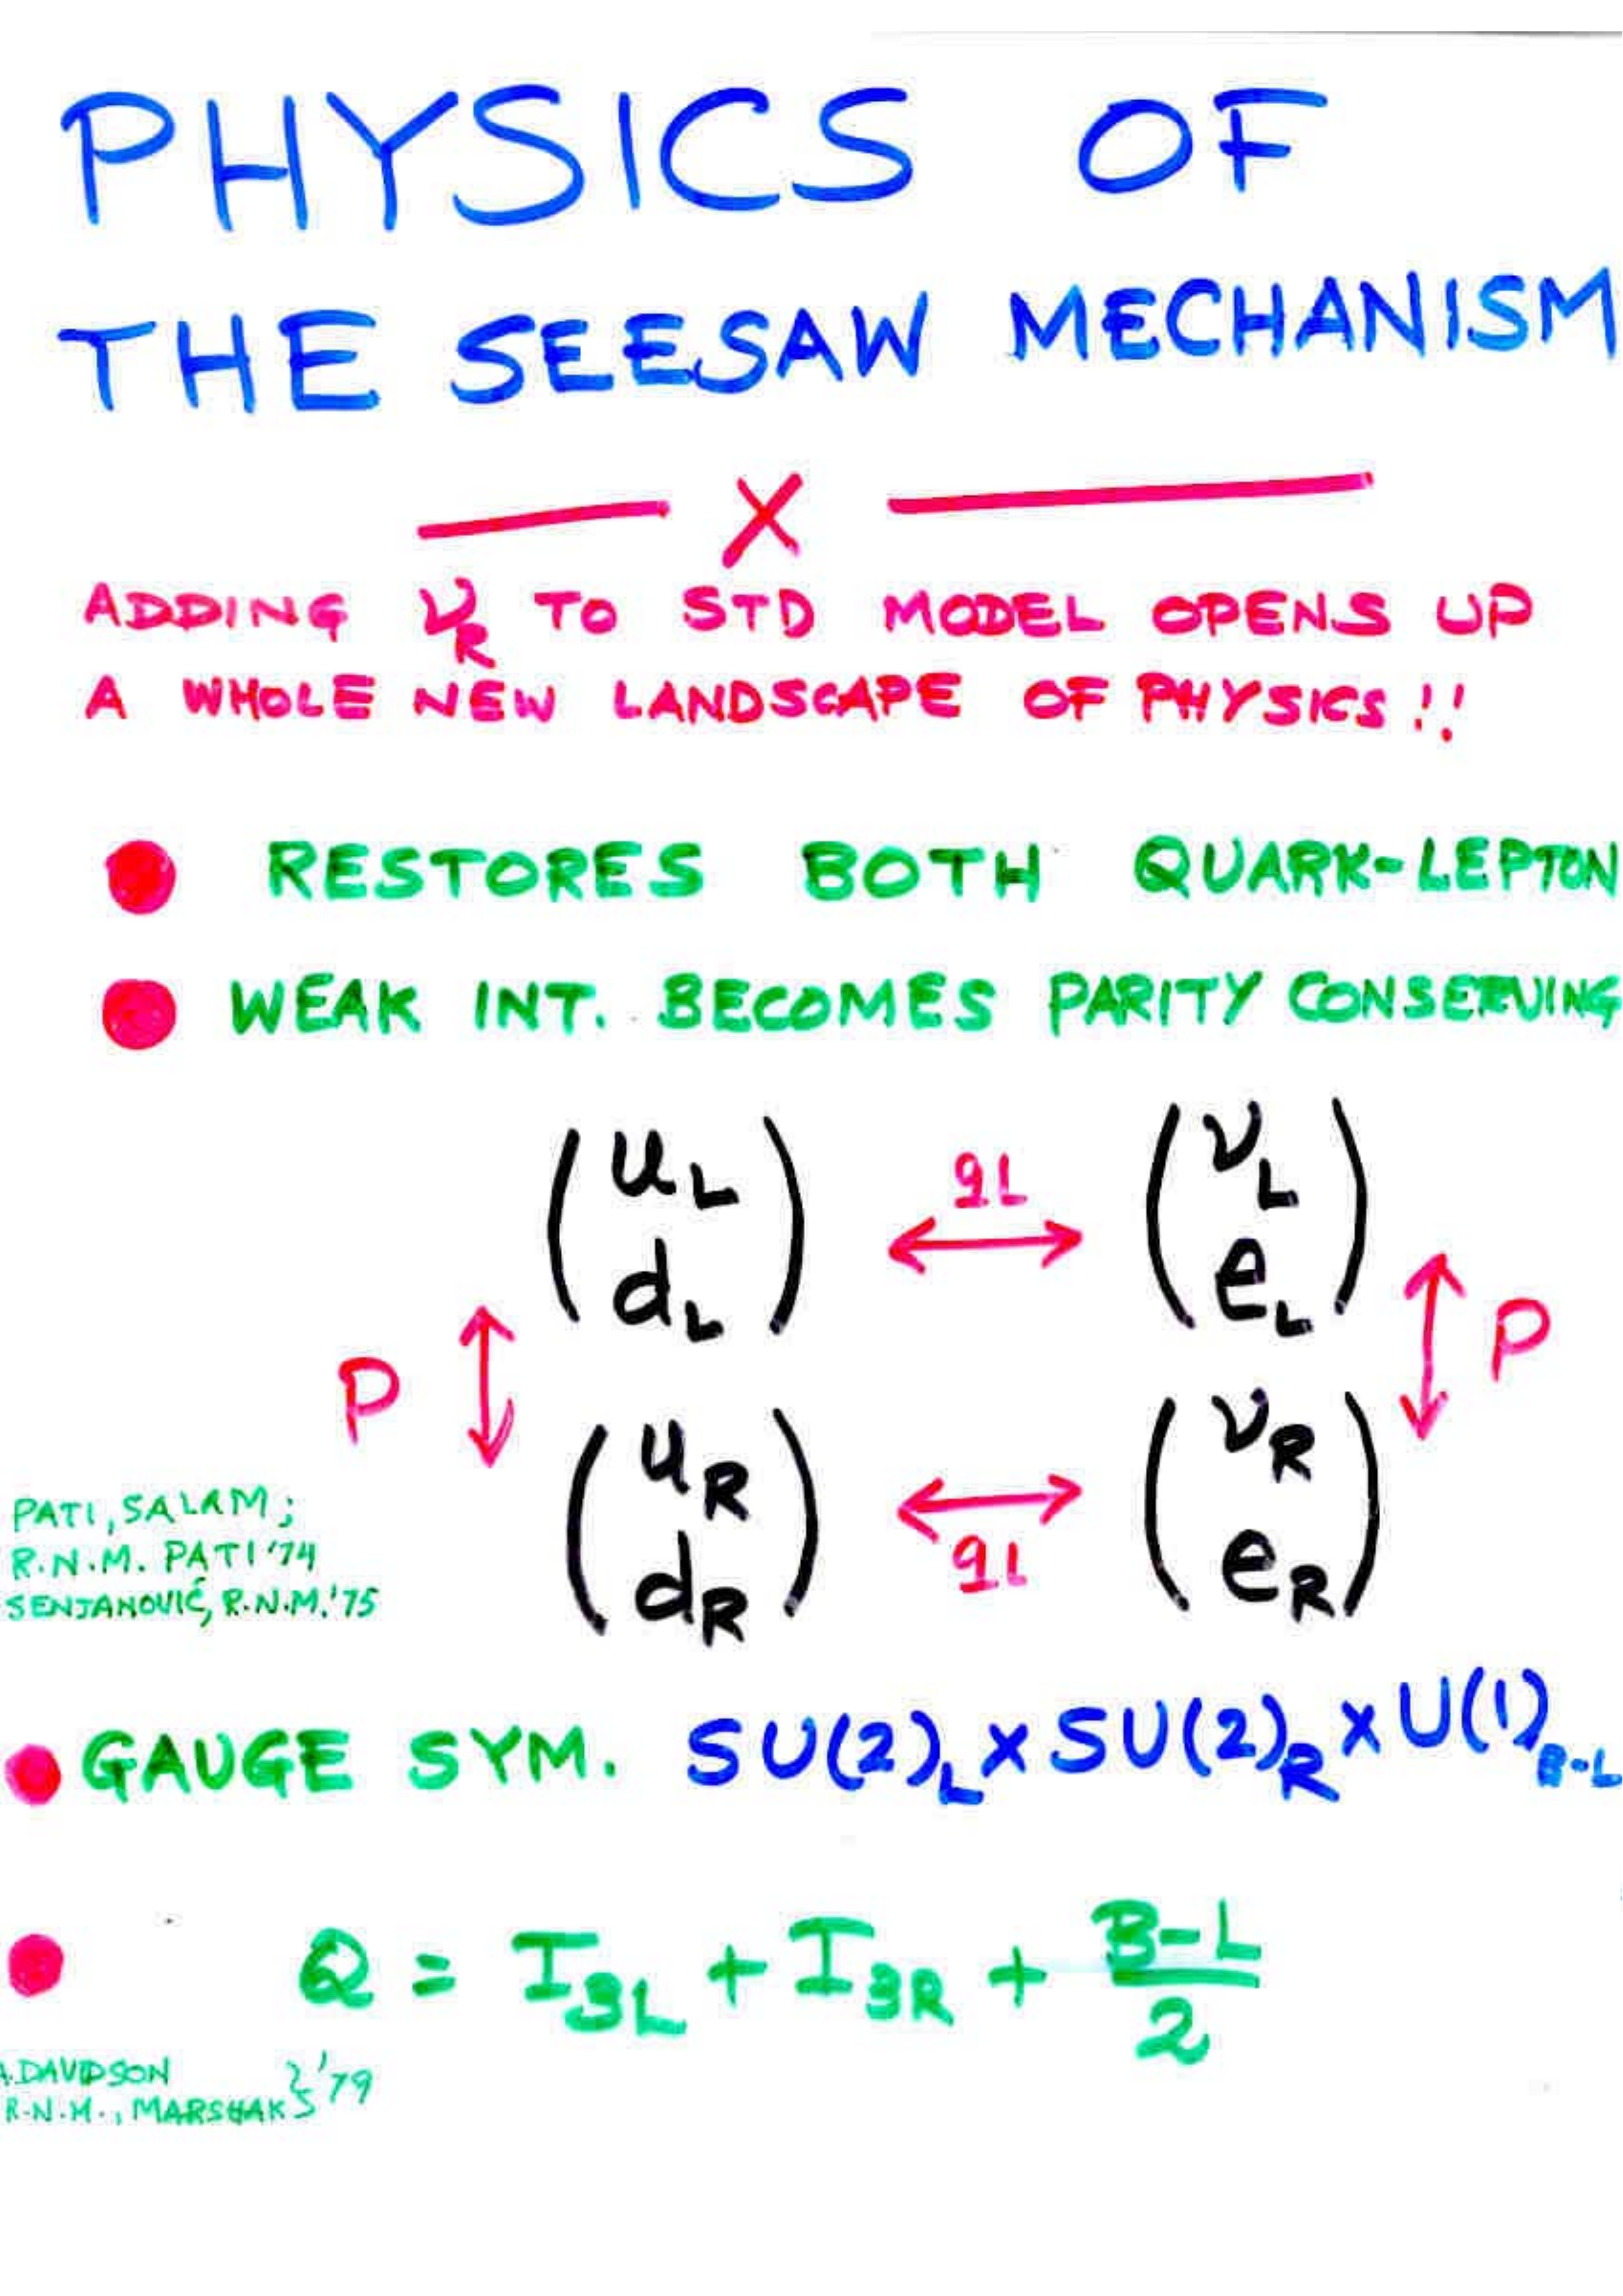 PHYSICS OF
THE SEESAW MECHANISM
X
ADDING ν_R TO STD MODEL OPENS UP
A WHOLE NEW LANDSCAPE OF PHYSICS!!
RESTORES BOTH QUARK-LEPTON
WEAK INT. BECOMES PARITY CONSERVING
(u_L d_L) ↔ qL (ν_L e_L)
P ↕ ↕ P
(u_R d_R) ↔ qL (ν_R e_R)
PATI, SALAM;
R.N.M. PATI '74
SENJANOVIĆ, R.N.M. '75
GAUGE SYM. SU(2)_L x SU(2)_R x U(1)_B-L
Q = I_3L + I_3R + (B-L)/2
A. DAVIDSON
R.N.M., MARSHAK } '79